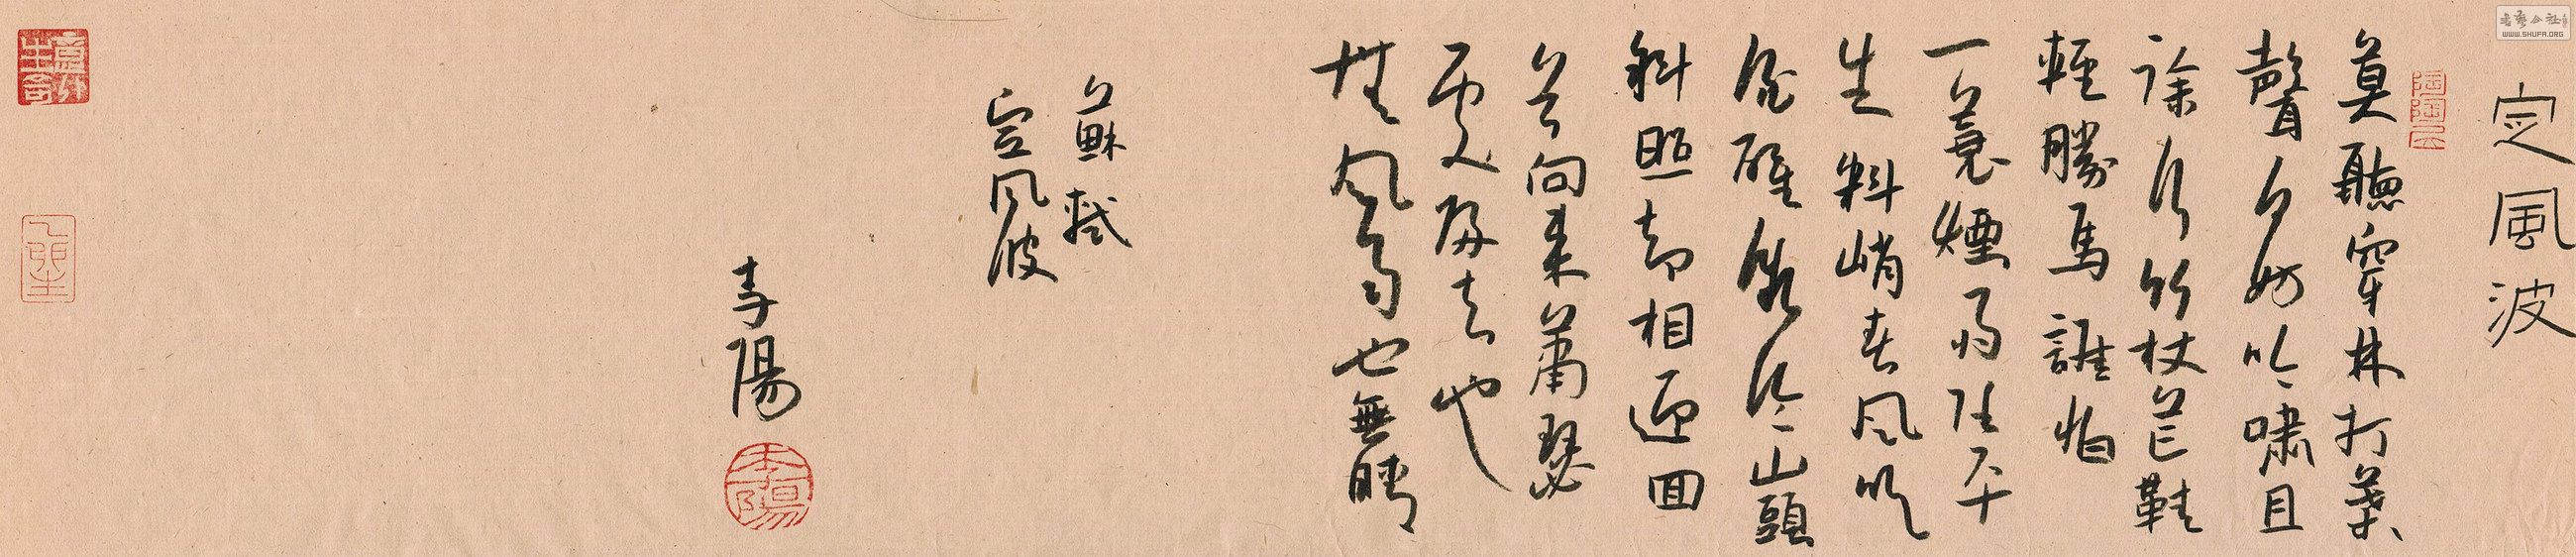 書法公社
WWW.SHUFA.ORG
定風波
莫聽穿林打葉
聲何妨吟嘯且
徐行竹杖芒鞋
輕勝馬誰怕
一蓑煙雨任平
生料峭春風吹
酒醒微冷山頭
斜照却相迎回
首向來蕭瑟
處歸去也
無風雨也無晴
蘇軾
定風波
李陽
李陽